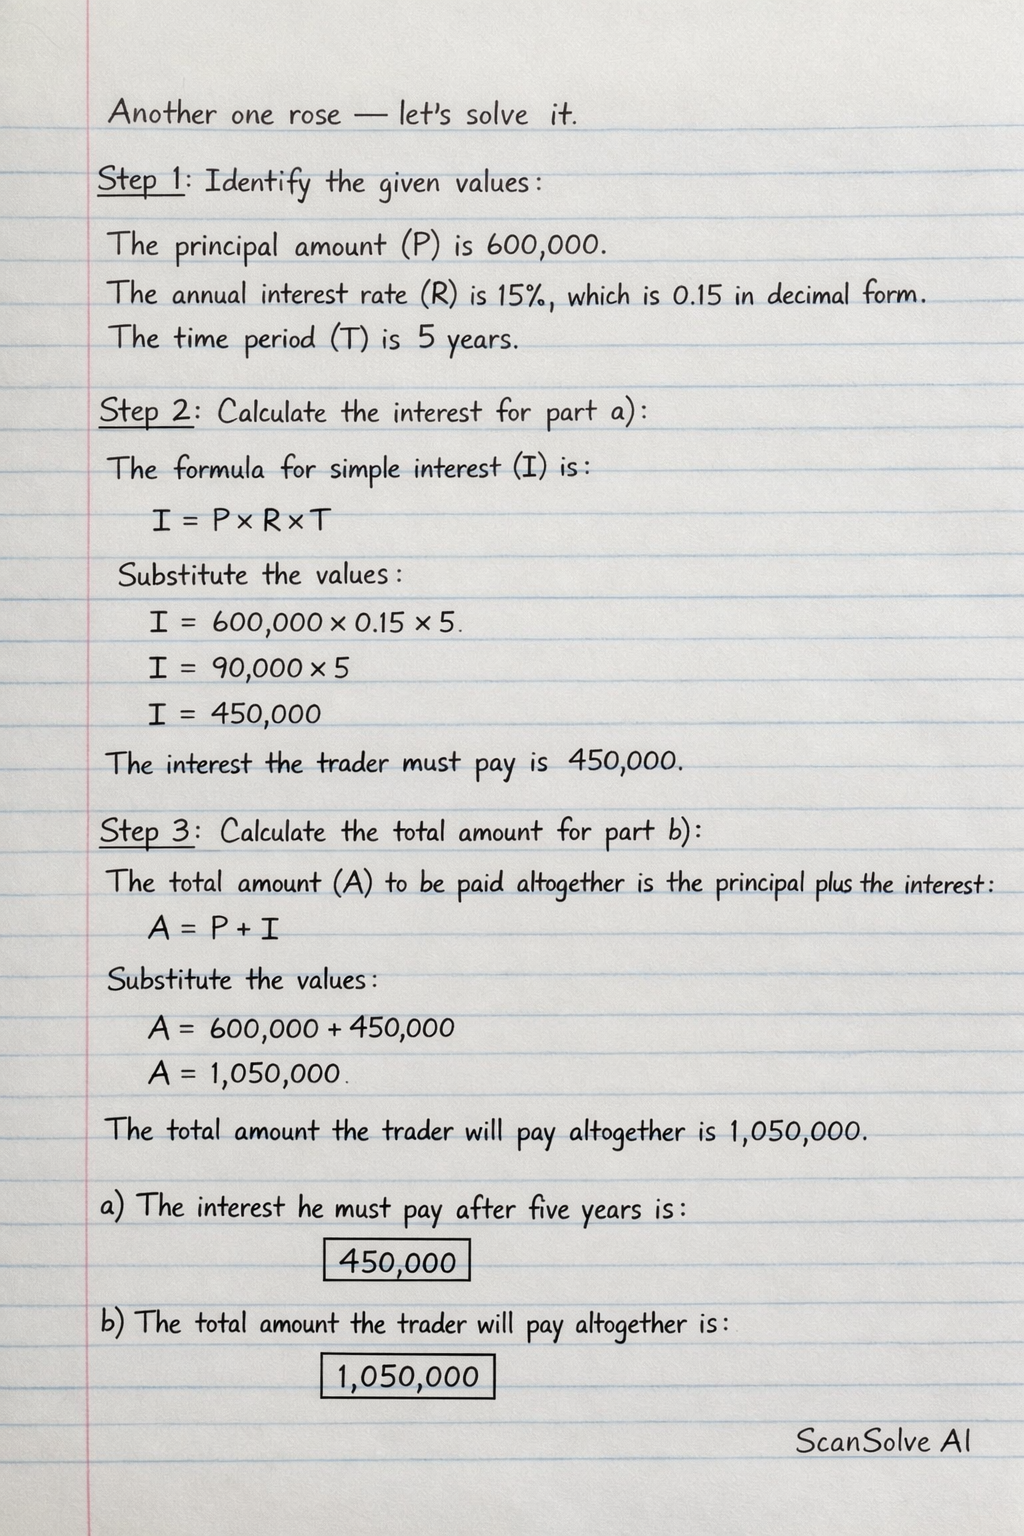 Another one rose — let's solve it.
Step 1: Identify the given values:
The principal amount (P) is 600,000.
The annual interest rate (R) is 15%, which is 0.15 in decimal form.
The time period (T) is 5 years.
Step 2: Calculate the interest for part a):
The formula for simple interest (I) is:
I = P × R × T
Substitute the values:
I = 600,000 × 0.15 × 5.
I = 90,000 × 5
I = 450,000
The interest the trader must pay is 450,000.
Step 3: Calculate the total amount for part b):
The total amount (A) to be paid altogether is the principal plus the interest:
A = P + I
Substitute the values:
A = 600,000 + 450,000
A = 1,050,000.
The total amount the trader will pay altogether is 1,050,000.
a) The interest he must pay after five years is:
450,000
b) The total amount the trader will pay altogether is:
1,050,000
ScanSolve AI